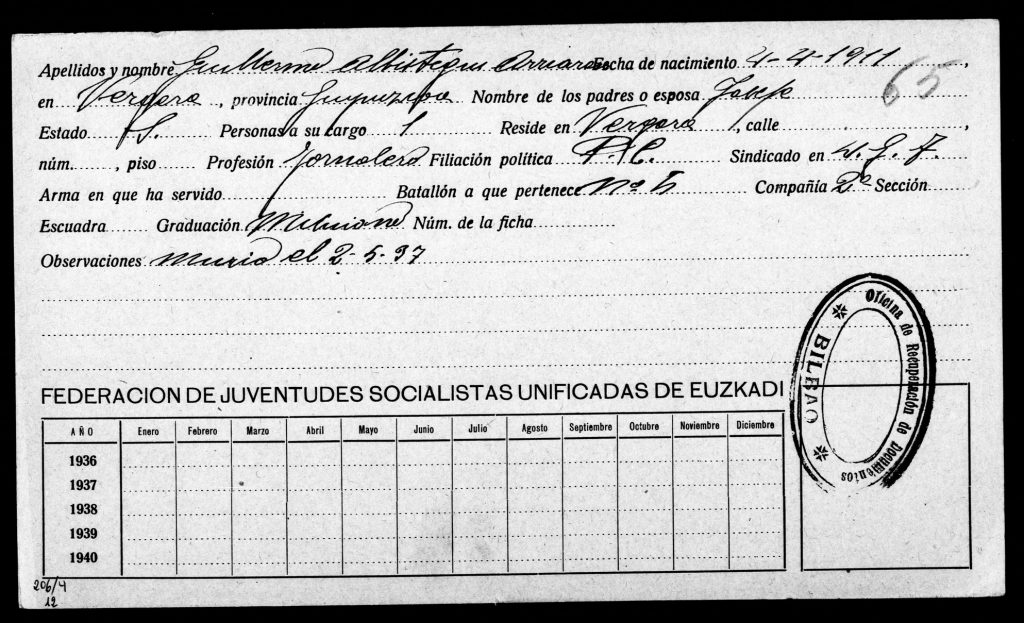 Apellidos y nombre Guillermo Albistegui Fecha de nacimiento 4-4-1911,
65
en Vergara, provincia Guipuzcoa Nombre de los padres o esposa
Estado S. Personas a su cargo 1 Reside en Vergara, calle ,
núm. , piso Profesión Jornalero Filiación política P.C. Sindicado en U.G.T.
Arma en que ha servido Batallón a que pertenece Compañía 2ª Sección
Escuadra Graduación Miliciano Núm. de la ficha
Observaciones Murió el 2-5-37
Oficina de Recuperación de Documentos
BILBAO
FEDERACION DE JUVENTUDES SOCIALISTAS UNIFICADAS DE EUZKADI
AÑO Enero Febrero Marzo Abril Mayo Junio Julio Agosto Septiembre Octubre Noviembre Diciembre
1936
1937
1938
1939
1940
206/4
12